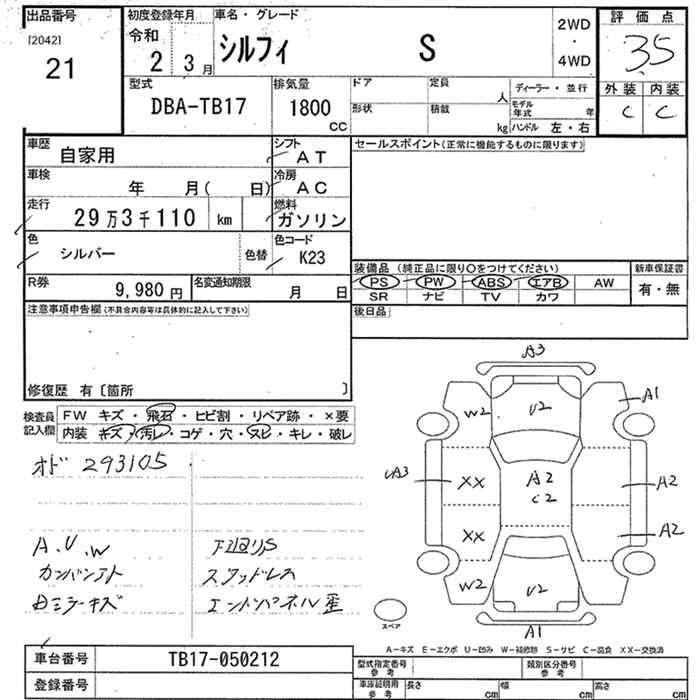 出品番号
[2042]
21
初度登録年月
令和
2 3月
車名・グレード
シルフィ S
2WD
・
4WD
評価点
3.5
外装 内装
C C
型式
DBA-TB17
排気量
1800
CC
ドア
定員
人
形状
積載
kg
ディーラー・並行
モデル年式 年
ハンドル 左・右
車歴
自家用
シフト
AT
セールスポイント(正常に機能するものに限ります)
車検
年 月( 日)
冷房
AC
走行
29万3千110 km
燃料
ガソリン
色
シルバー
色替
色コード
K23
R券
9,980 円
名変通知期限
月 日
装備品 (純正品に限り○をつけてください)
PS PW ABS エアB AW
SR ナビ TV カワ
新車保証書
有・無
後日品
注意事項申告欄(不具合内容等は具体的に記入して下さい)
修復歴 有〔箇所 〕
検査員記入欄
FW キズ・飛石・ヒビ割・リペア跡・×要
内装 キズ・汚レ・コゲ・穴・スレ・キレ・破レ
オド 293105
A.U.W
下廻りS
スタッドレス
エンドパネル歪
A3
W2 U2 A1
A3 XX A2 C2 A2
XX A2
W2 U2
A1
スペア
A-キズ E-エクボ U-凹み W-補修跡 S-サビ C-腐食 XX-交換済
車台番号
TB17-050212
登録番号
型式指定番号
参考
類別区分番号
参考
車庫証明用
参考
長さ cm 幅 cm 高さ cm